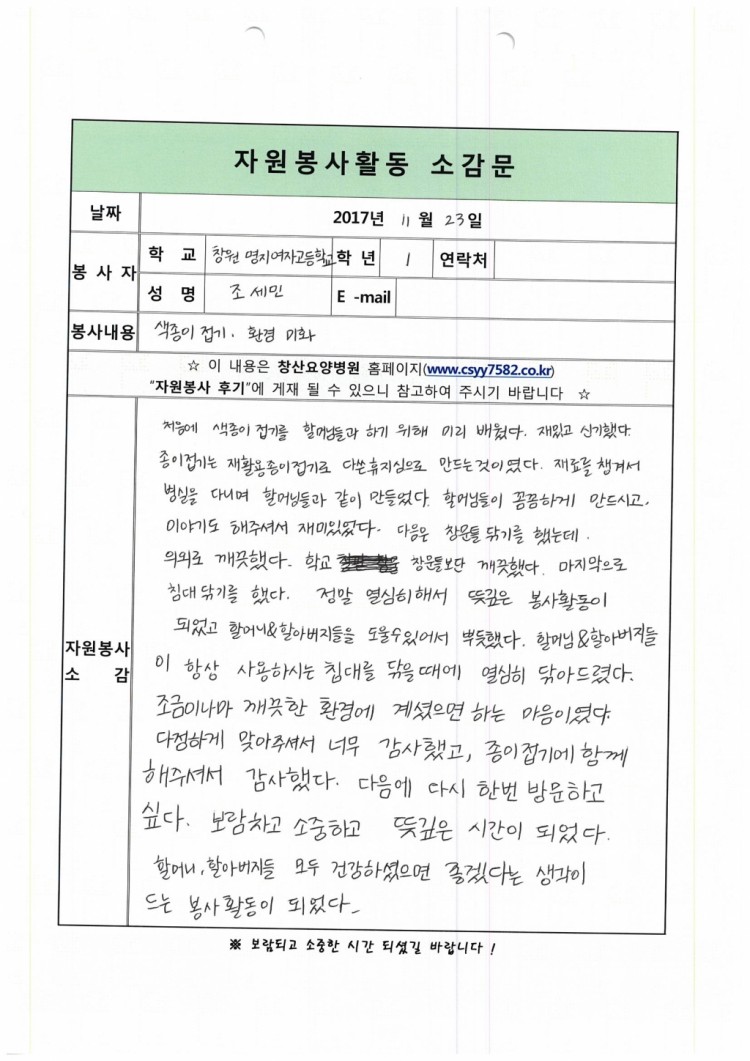 자원봉사활동 소감문
날짜 2017년 11 월 23일
봉사자 학 교 창원 명지여자고등학교 학 년 1 연락처
성 명 조세민 E -mail
봉사내용 색종이 접기. 환경 미화
☆ 이 내용은 창산요양병원 홈페이지(www.csyy7582.co.kr)
"자원봉사 후기"에 게재 될 수 있으니 참고하여 주시기 바랍니다 ☆
자원봉사
소 감
처음에 색종이 접기를 할머님들과 하기 위해 미리 배웠다. 재밌고 신기했다.
종이접기는 재활용종이접기로 다쓴휴지심으로 만드는것이였다. 재료를 챙겨서
병실을 다니며 할머님들과 같이 만들었다. 할머님들이 꼼꼼하게 만드시고.
이야기도 해주셔서 재미있었다. 다음은 창문틀 닦기를 했는데.
의외로 깨끗했다. 학교 창문틀보단 깨끗했다. 마지막으로
침대 닦기를 했다. 정말 열심히해서 뜻깊은 봉사활동이
되었고 할머니&할아버지들을 도울수있어서 뿌듯했다. 할머님&할아버지들
이 항상 사용하시는 침대를 닦을때에 열심히 닦아드렸다.
조금이나마 깨끗한 환경에 계셨으면 하는 마음이였다.
다정하게 맞아주셔서 너무 감사했고, 종이접기에 함께
해주셔서 감사했다. 다음에 다시 한번 방문하고
싶다. 보람차고 소중하고 뜻깊은 시간이 되었다.
할머니, 할아버지들 모두 건강하셨으면 좋겠다는 생각이
드는 봉사활동이 되었다_
※ 보람되고 소중한 시간 되셨길 바랍니다 !